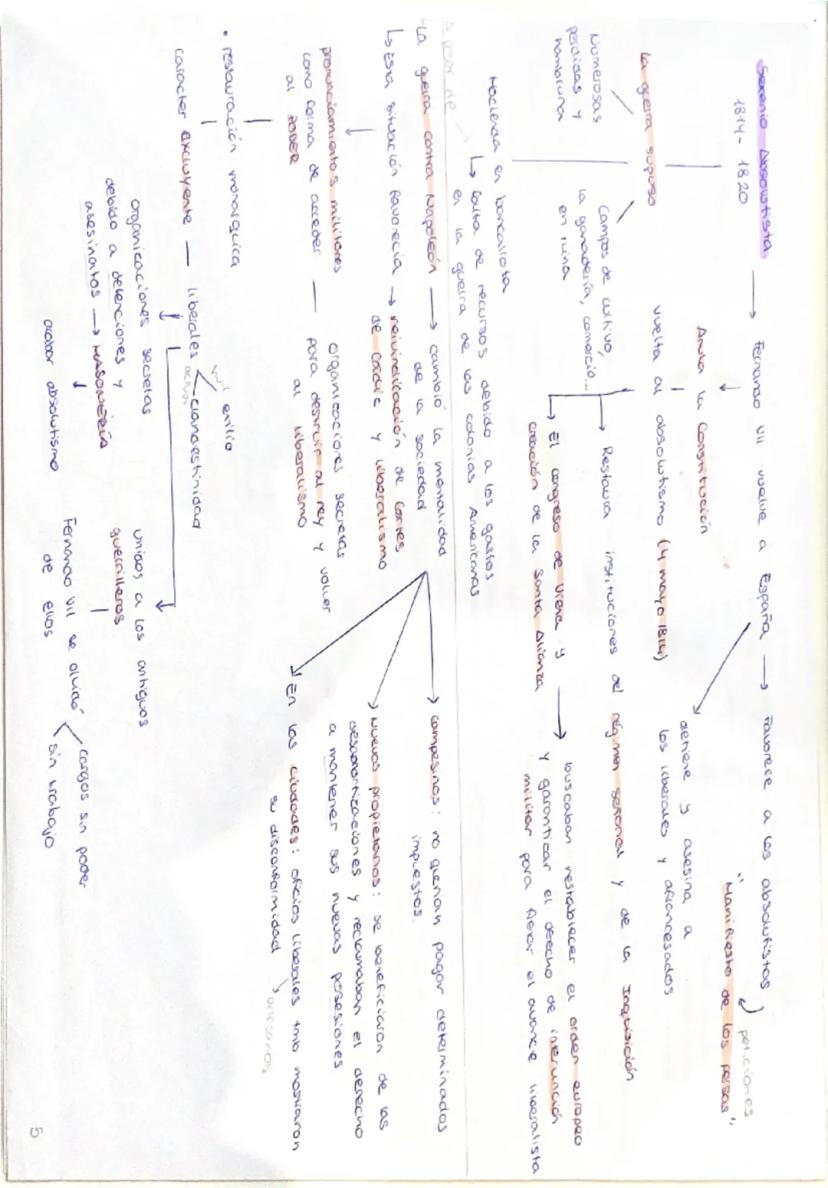 Sexenio Absolutista
1814 - 1820
Fernando VII vuelve a España → Favorece a los absolutistas
peticiones
"Manifiesto de los persas"
Anula la Constitución
vuelta al absolutismo (4 mayo 1814)
detiene y asesina a
los liberales y afrancesados
La guerra supuso
Numerosas
pérdidas y
hambruna
Campos de cultivo,
la ganadería, comercio...
en ruina
Restaura instituciones del régimen señorial y de la Inquisición
El congreso de Viena y
creación de la Santa Alianza
buscaban restablecer el orden europeo
y garantizar el derecho de
militar para frenar el avance liberalista
Hacienda en bancarrota
↳ falta de recursos debido a los gastos
en la guerra de las colonias Americanas
A pesar de
- La guerra contra Napoleón → cambió la mentalidad
de la sociedad
↳ Esta situación favorecía → reivindicación de Cortes
de Cádiz y liberalismo
campesinos: no querían pagar determinados
impuestos.
Nuevos propietarios: se beneficiaron de las
desamortizaciones y reclamaban el derecho
a mantener sus nuevas posesiones
En las ciudades: oficios liberales tmb mostraron
su disconformidad
artesanos
pronunciamientos militares
como forma de acceder
al PODER
organizaciones secretas
para destruir al rey y volver
al liberalismo
• restauración monárquica
carácter excluyente — liberales
exilio
clandestinidad
organizaciones secretas
debido a detenciones y
asesinatos → MASONERÍA
acabar absolutismo
unidos a los antiguos
guerrilleros
Fernando VII se olvidó
de ellos
cargos sin poder
sin trabajo
5